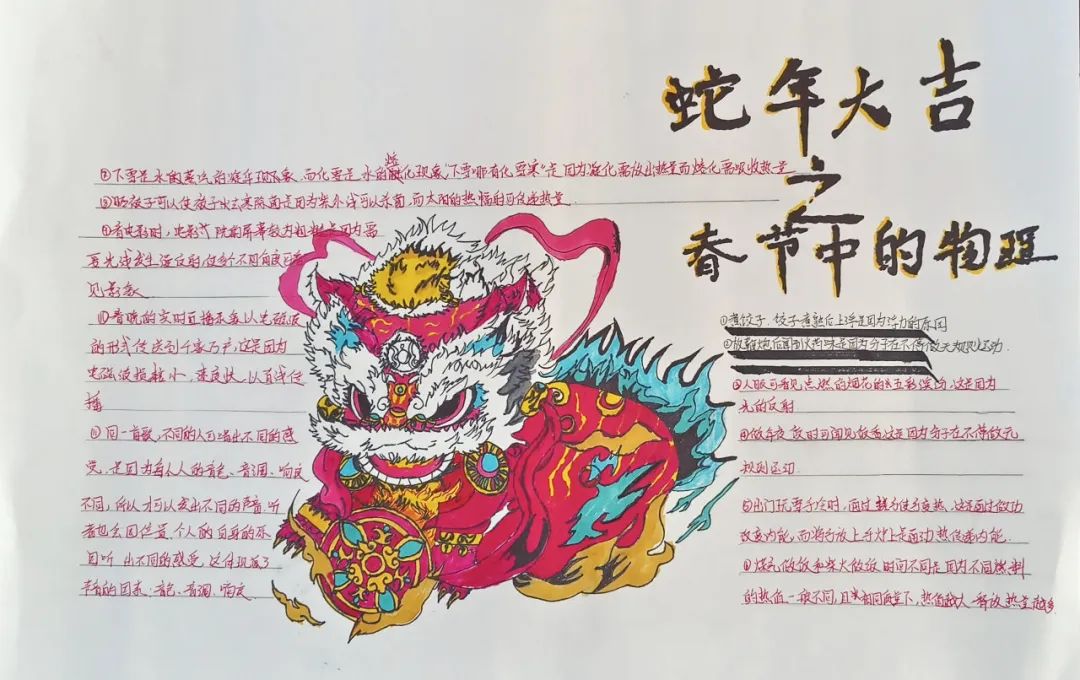 蛇年大吉
之
春节中的物理
①煮饺子,饺子煮熟后上浮是因为浮力的原因
②放鞭炮后闻到火药味是因为分子在不停做无规则运动.
③人眼可看见点燃的烟花的五彩缤纷,这是因为
光的反射
④做年夜饭时可闻见饭香这是因为分子在不停做无
规则运动.
⑤出门玩雪手冷时,通过搓手使手变热,这是通过做功
改变内能,而将手放上手炉上是通过热传递内能.
⑥煤气做饭和柴火做饭时间不同是因为不同燃料
的热值一般不同,且相同质量下,热值越大释放热量越多
⑦下雪是水的蒸汽的凝华现象,而化雪是水的熔化现象"下雪哪有化雪寒"是因为凝化需放出热量而熔化需吸收热量
⑧晒被子可以使被子
是因为紫外线可以杀菌,而太阳的热辐射可传递热量.
⑨看电影时,电影院的屏幕较为粗糙是因为需
要光线发生漫反射,使多个不同角度可看
见影象
⑩春晚的实时直播不多以电磁波
的形式传送到千家万户,这是因为
电磁波损耗小,速度快,以直线传
播
同一首歌,不同的人可唱出不同的感
觉,是因为每个人的音色、音调、响度
不同,所以才可以发出不同的声音,听
者也会因位置,个人的自身的原
因听出不同的感受,这体现了
声音的因素:音色、音调、响度